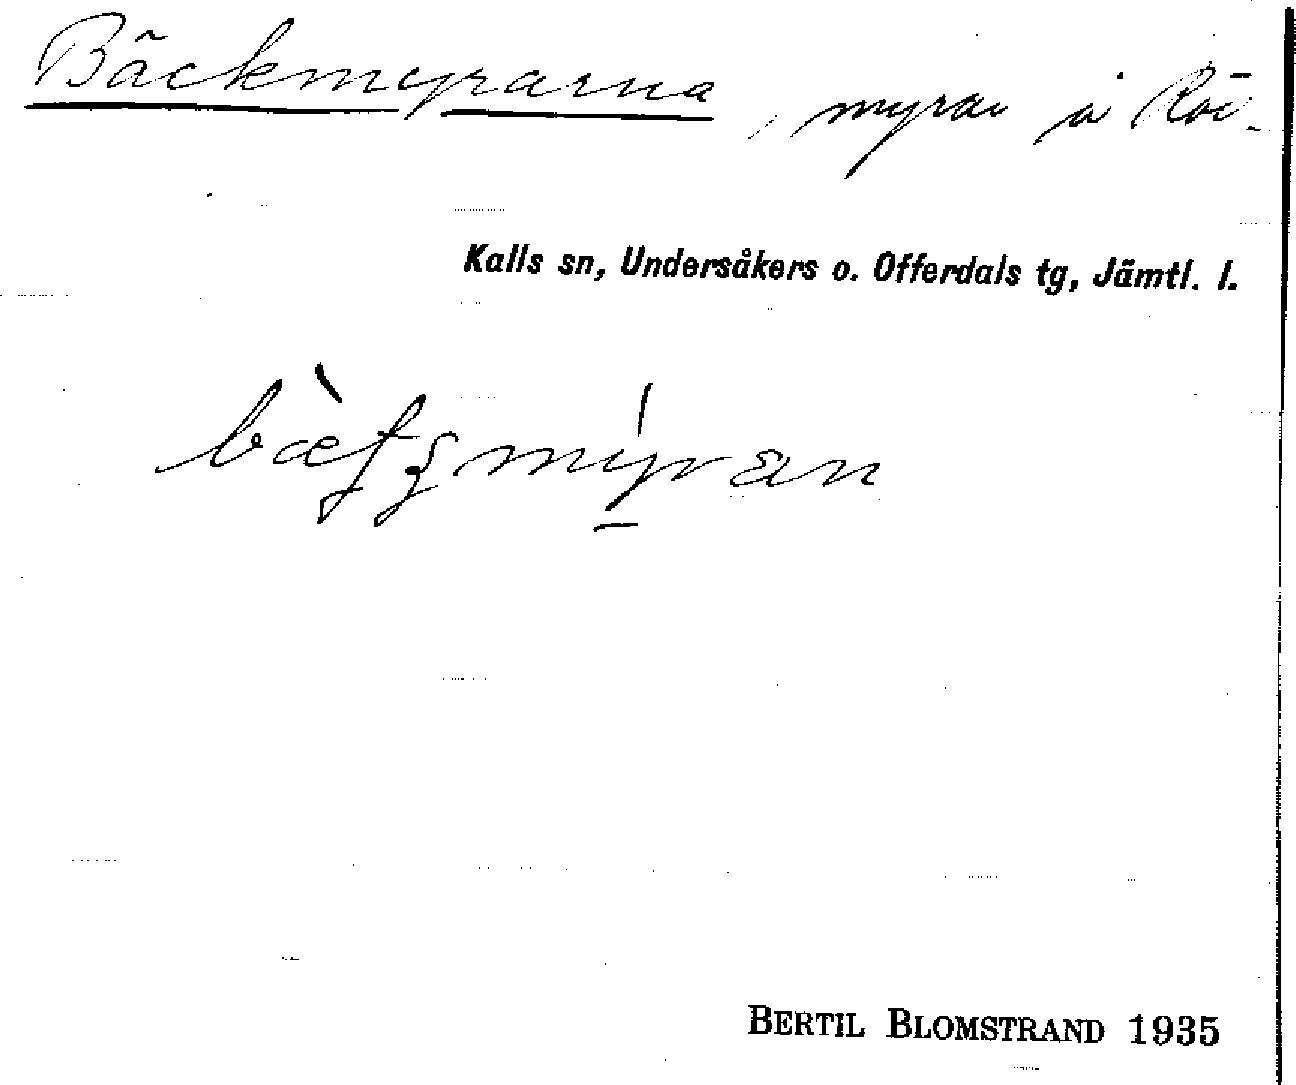 Bäckmyrarna, myrar å Röi.
Kalls sn, Undersåkers o. Offerdals tg, Jämtl. l.
BERTIL BLOMSTRAND 1935